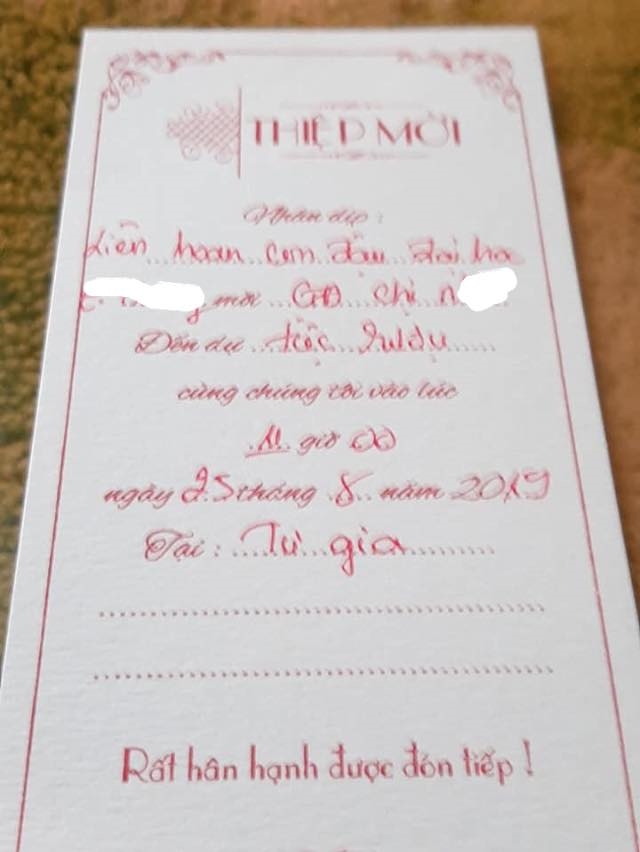 THIỆP MỜI
Nhân dịp :
Liên hoan con đầu đại học
mời GĐ chị
Đến dự tiệc rượu
cùng chúng tôi vào lúc
11 giờ 00
ngày 25 tháng 8 năm 2019
Tại : Tư gia
Rất hân hạnh được đón tiếp !